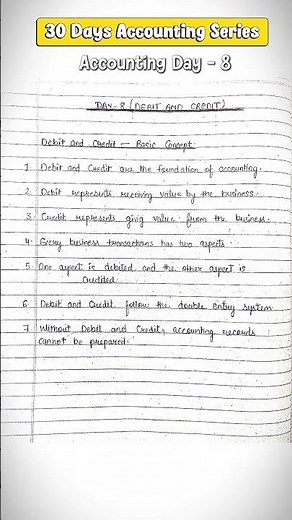 30 Days Accounting Series
Accounting Day - 8
DAY-8 (DEBIT AND CREDIT)
Debit and Credit — Basic Concept
1. Debit and Credit are the foundation of accounting.
2. Debit represents receiving value by the business.
3. Credit represents giving value from the business.
4. Every business transactions has two aspects.
5. One aspect is debited and the other aspect is
credited.
6. Debit and Credit follow the double Entry system
7. Without Debit and Credit, accounting records
cannot be prepared.